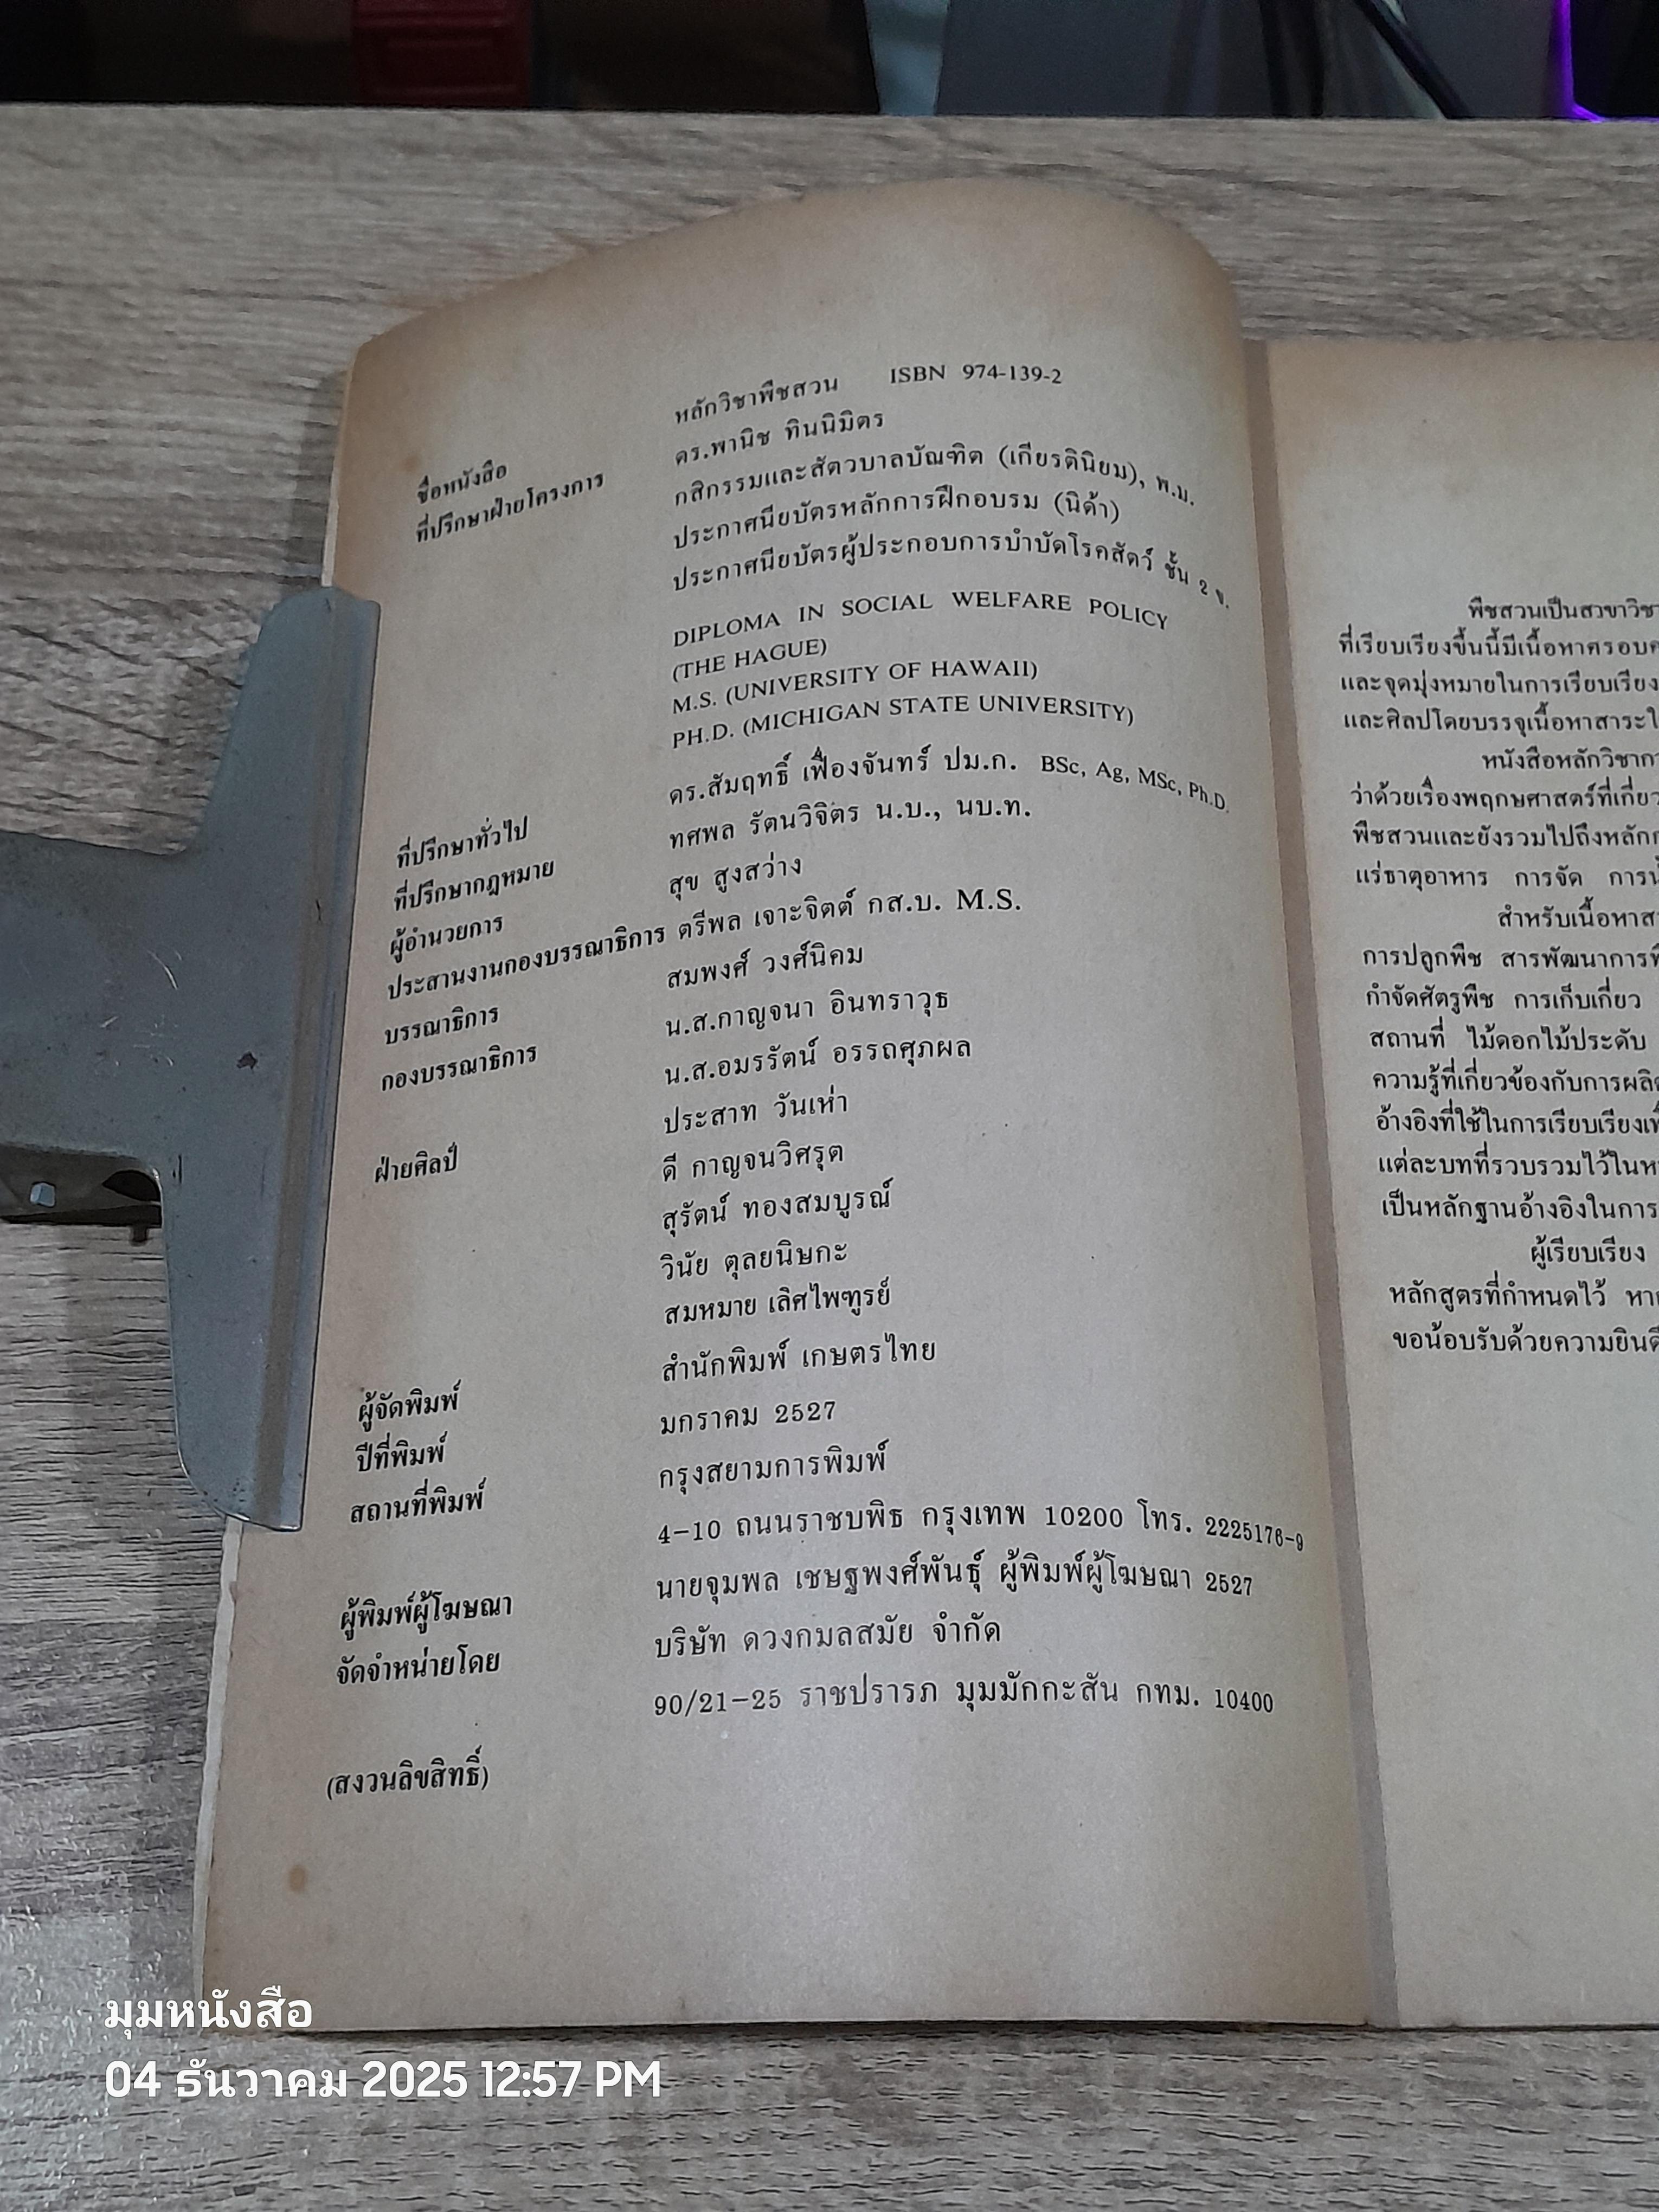 ชื่อหนังสือ หลักวิชาพืชสวน ISBN 974-139-2
ที่ปรึกษาฝ่ายโครงการ ดร.พานิช ทินนิมิตร
กสิกรรมและสัตวบาลบัณฑิต (เกียรตินิยม), พ.ม.
ประกาศนียบัตรหลักการฝึกอบรม (นิด้า)
ประกาศนียบัตรผู้ประกอบการบำบัดโรคสัตว์ ชั้น 2 ข.
DIPLOMA IN SOCIAL WELFARE POLICY
(THE HAGUE)
M.S. (UNIVERSITY OF HAWAII)
PH.D. (MICHIGAN STATE UNIVERSITY)
ที่ปรึกษาทั่วไป ดร.สัมฤทธิ์ เฟื่องจันทร์ ปม.ก. BSc, Ag, MSc, Ph.D.
ที่ปรึกษากฎหมาย ทศพล รัตนวิจิตร น.บ., นบ.ท.
ผู้อำนวยการ สุข สูงสว่าง
ประสานงานกองบรรณาธิการ ตรีพล เจาะจิตต์ กส.บ. M.S.
บรรณาธิการ สมพงศ์ วงศ์นิคม
กองบรรณาธิการ น.ส.กาญจนา อินทราวุธ
น.ส.อมรรัตน์ อรรถศุภผล
ประสาท วันเห่า
ฝ่ายศิลป์ ดี กาญจนวิศรุต
สุรัตน์ ทองสมบูรณ์
วินัย ตุลยนิษกะ
สมหมาย เลิศไพฑูรย์
ผู้จัดพิมพ์ สำนักพิมพ์ เกษตรไทย
ปีที่พิมพ์ มกราคม 2527
สถานที่พิมพ์ กรุงสยามการพิมพ์
4-10 ถนนราชบพิธ กรุงเทพ 10200 โทร. 2225176-9
ผู้พิมพ์ผู้โฆษณา นายจุมพล เชษฐพงศ์พันธุ์ ผู้พิมพ์ผู้โฆษณา 2527
จัดจำหน่ายโดย บริษัท ดวงกมลสมัย จำกัด
90/21-25 ราชปรารภ มุมมักกะสัน กทม. 10400
(สงวนลิขสิทธิ์)
พืชสวนเป็นสาขาวิชา
ที่เรียบเรียงขึ้นนี้มีเนื้อหาครอบค
และจุดมุ่งหมายในการเรียบเรียง
และศิลปโดยบรรจุเนื้อหาสาระใ
หนังสือหลักวิชากา
ว่าด้วยเรื่องพฤกษศาสตร์ที่เกี่ยว
พืชสวนและยังรวมไปถึงหลักก
แร่ธาตุอาหาร การจัด การน้
สำหรับเนื้อหาสา
การปลูกพืช สารพัฒนาการพื
กำจัดศัตรูพืช การเก็บเกี่ยว
สถานที่ ไม้ดอกไม้ประดับ
ความรู้ที่เกี่ยวข้องกับการผลิต
อ้างอิงที่ใช้ในการเรียบเรียงเพื
แต่ละบทที่รวบรวมไว้ในห
เป็นหลักฐานอ้างอิงในการ
ผู้เรียบเรียง
หลักสูตรที่กำหนดไว้ หา
ขอน้อบรับด้วยความยินดี
มุมหนังสือ
04 ธันวาคม 2025 12:57 PM